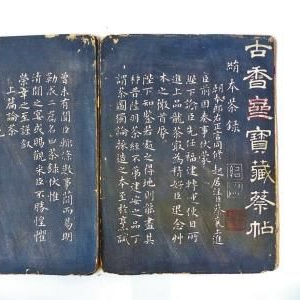 古香齋寶藏蔡帖
茶錄
朝奉郎右正言同修起居注臣蔡襄上進
臣前因奏事伏蒙
陛下諭臣先任福建轉運使日所
進上品龍茶最為精好臣退念草
木之微首辱
陛下知鑒若處之得地則能盡其
材昔陸羽茶經不第建安之品丁
謂茶圖獨論採造之本至於烹試
曾未有聞臣輒條數事簡而易明
勒成二篇名曰茶錄伏惟
清閒之宴或賜觀采臣不勝惶懼
榮幸之至謹敘
上篇論茶